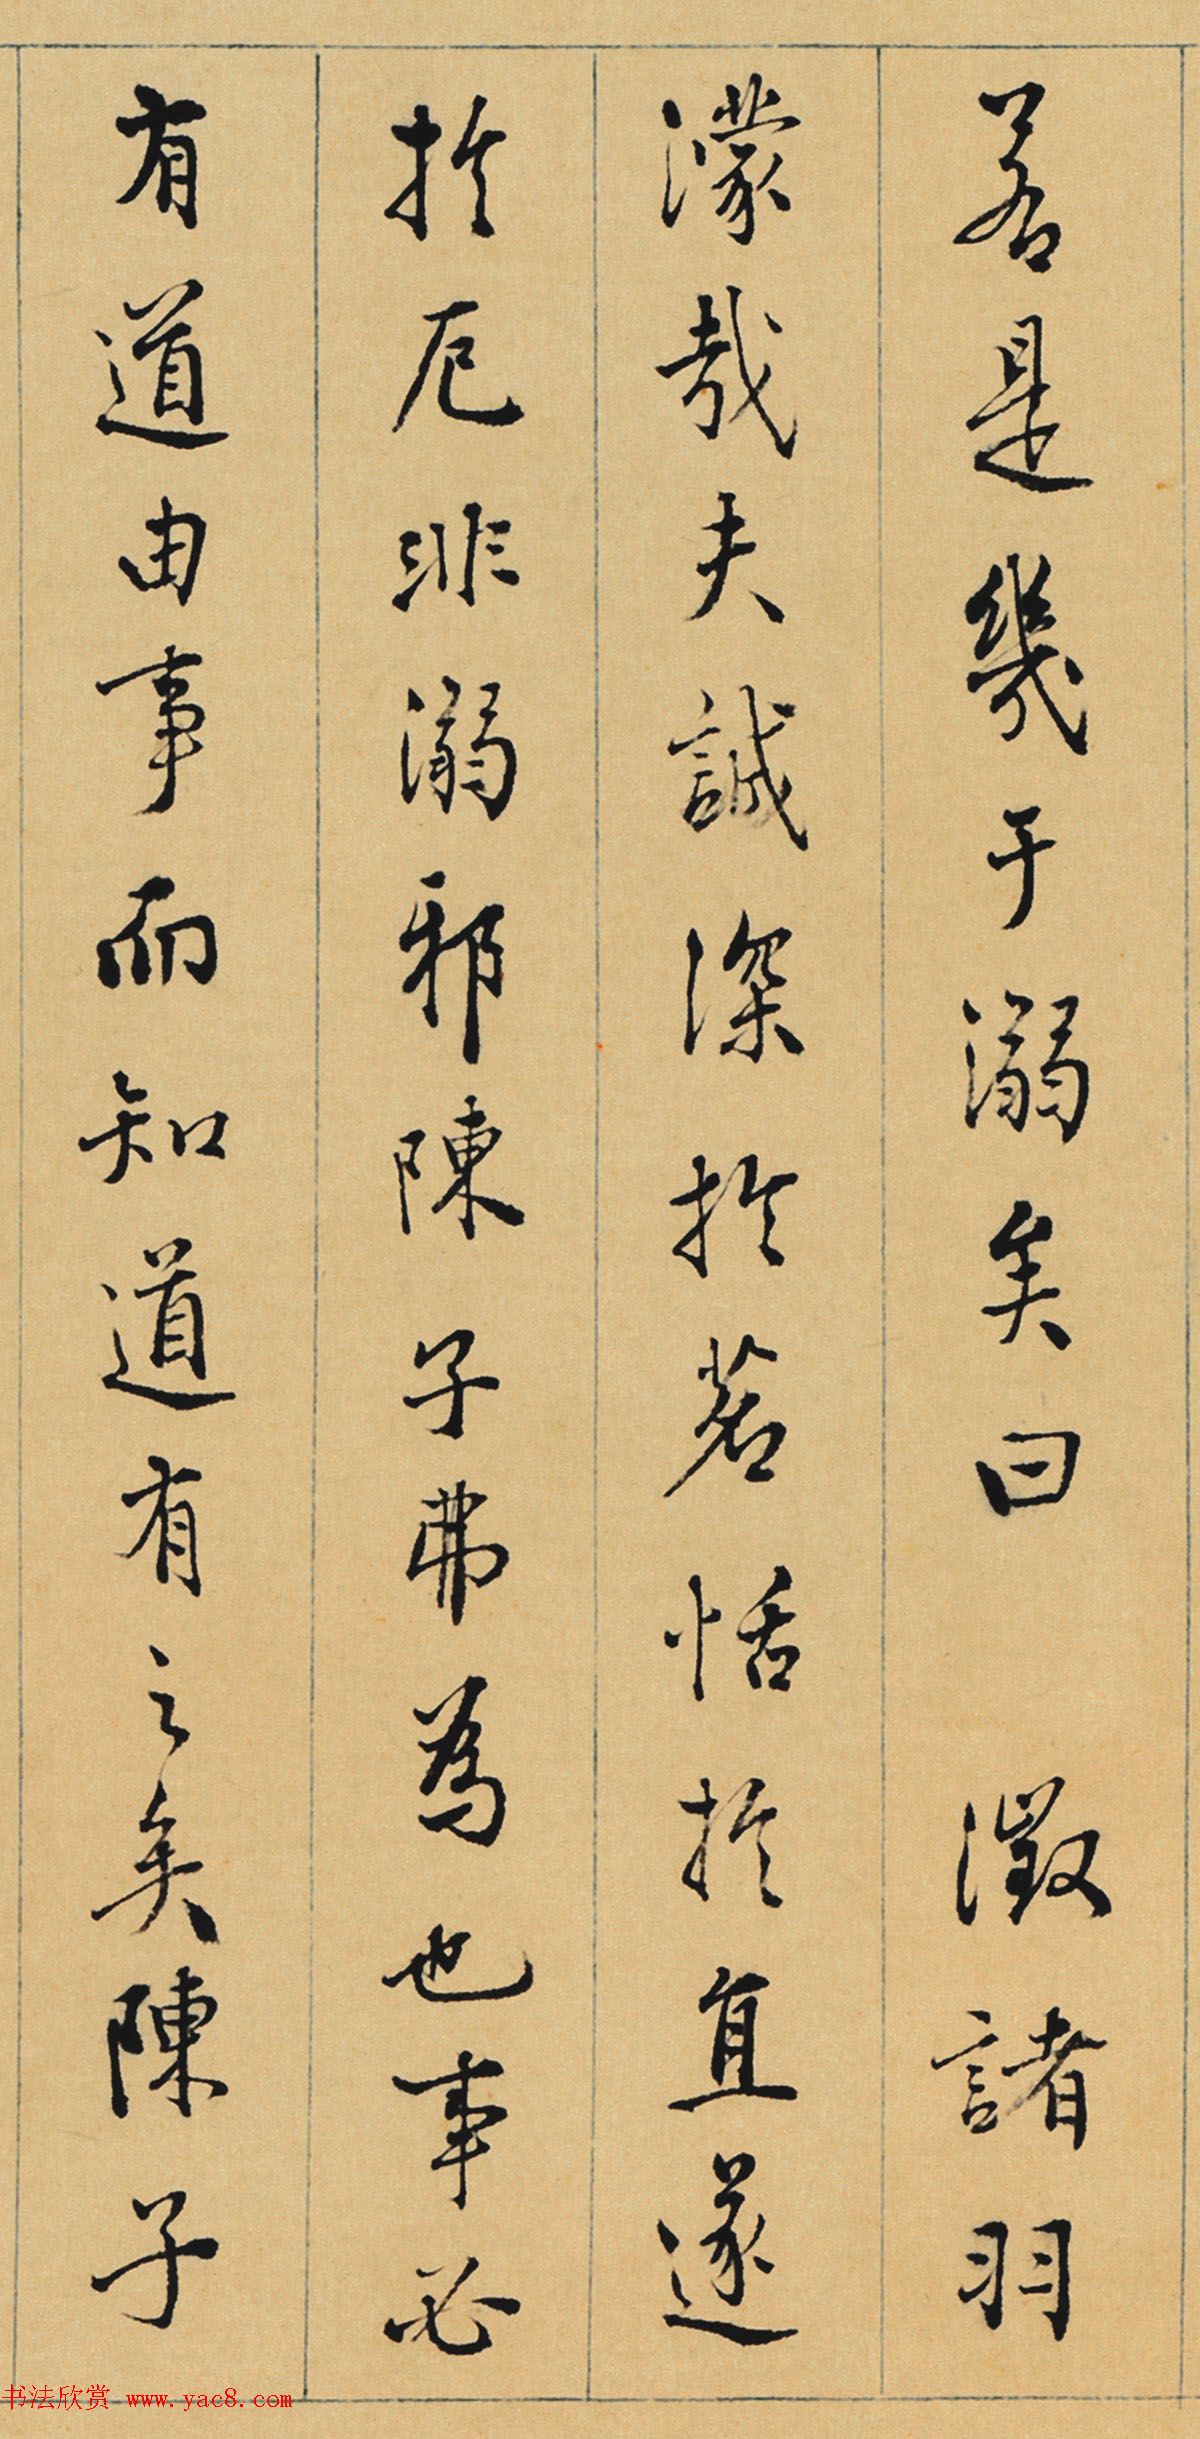 若是幾于溺矣曰 澂諸羽
濛哉夫誠深於茗恬於直遂
於厄非溺邪陳子弗為也事必
有道由事而知道有之矣陳子
书法欣赏 www.yac8.com